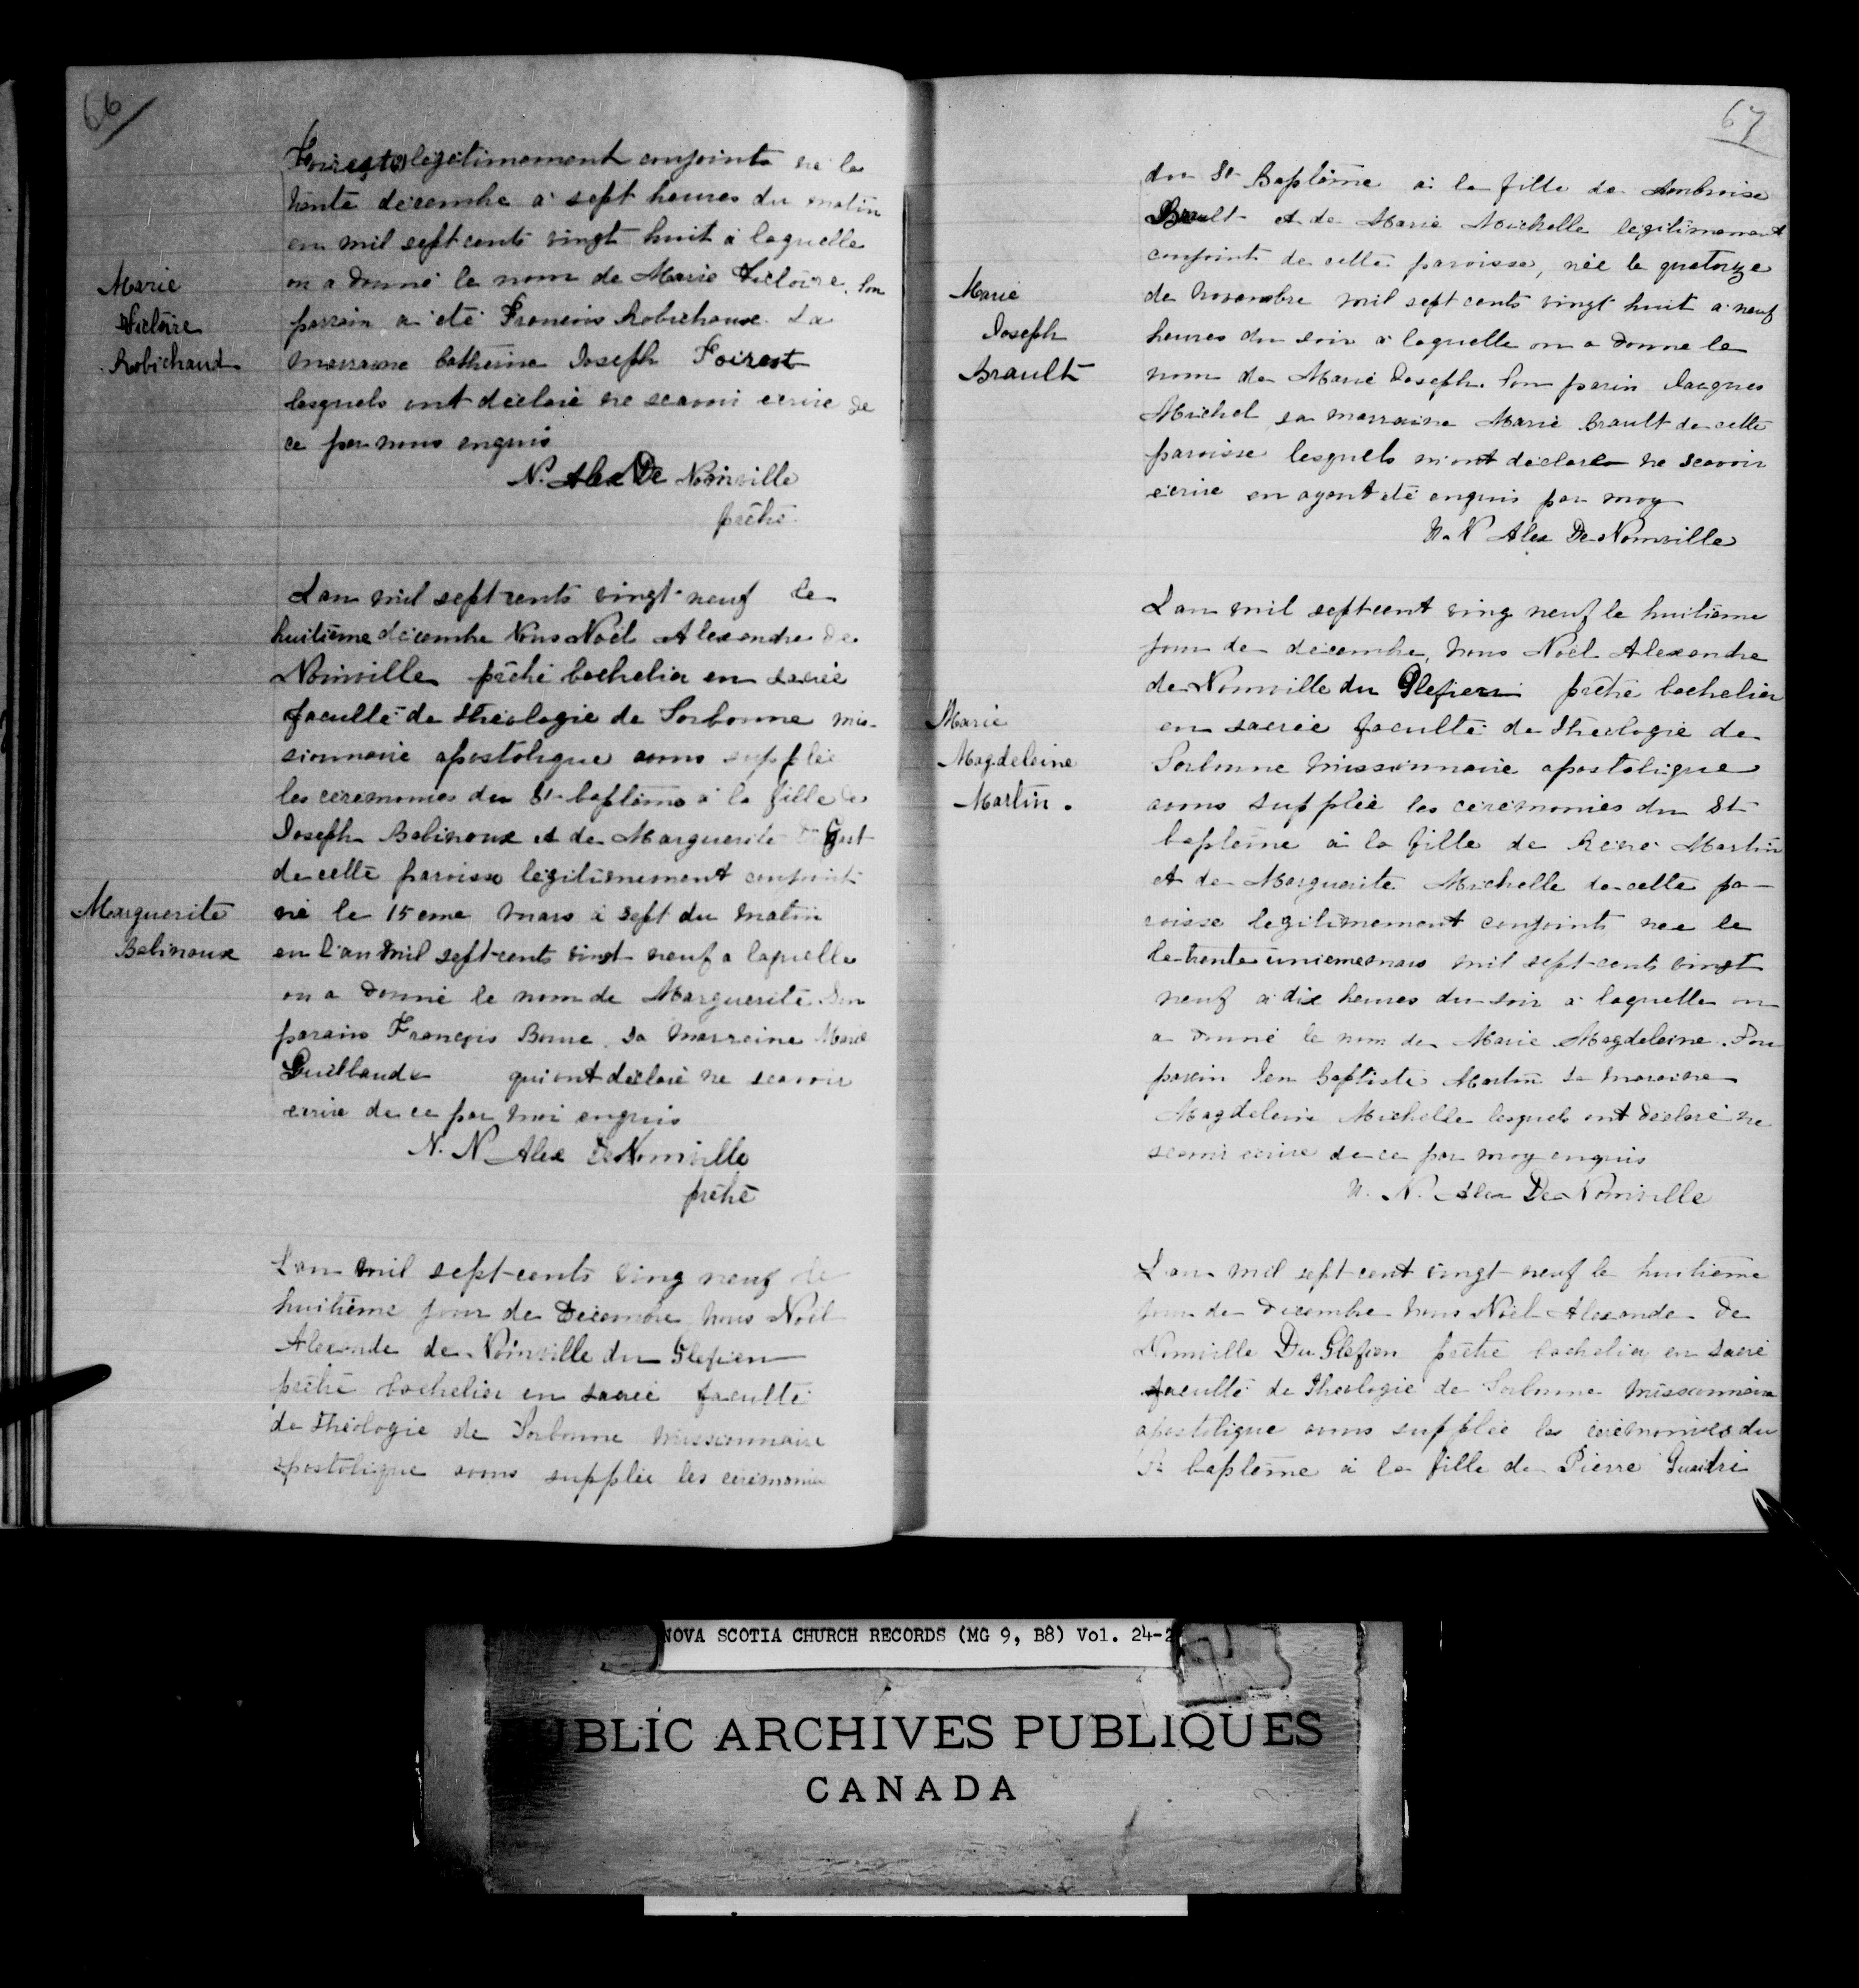 66
Foirest légitimement conjoints né le
trente décembre à sept heures du matin
en mil sept cents vingt huit à laquelle
on a donné le nom de Marie Victoire. Son
Marie
Victoire
Robichaud
parrain a été François Robichaux. La
marraine Catherine Joseph Foirest
lesquels ont déclaré ne scavoir ecrire de
ce par nous enquis
N. Alex De Noinville
prêtre.
Lan mil sept cents vingt neuf le
huitième décembre Nous Noël Alexandre de
Noinville prêtre bachelier en sacrée
faculté de théologie de Sorbonne mis-
sionnaire apostolique avons supplée
les ceremonies du St baptême à la fille de
Joseph Babinoux et de Marguerite
de cette paroisse légitimement conjoints
Marguerite
Babinoux
né le 15 eme mars à sept du matin
en l'an mil sept-cents vingt neuf a laquelle
on a donné le nom de Marguerite Son
parain François Bourc sa marraine Marie
Guilbaude qui ont déclaré ne scavoir
ecrire de ce par moi enquis
N. N Alex De Noinville
prêtre
Lan mil sept-cents ving neuf le
huitième jour de Décembre nous Noël
Alexandre de Noinville du Glefien
prêtre bachelier en sacrée faculté
de théologie de Sorbonne missionnaire
apostolique avons supplée les cérémonies
67
du St Baptême à la fille de Ambroise
Brault et de Marie Michelle légitimement
conjoints de cette paroisse, née le quatorze
Marie
Joseph
Brault
de novembre mil sept cents vingt huit a neuf
heures du soir à laquelle on a donné le
nom de Marie Joseph. Son parin Jacques
Michel sa marraine Marie Brault de cette
paroisse lesquels m'ont déclaré ne scavoir
écrire en ayant été enquis par moy
N. N Alex De Noinville
Lan mil sept-cent ving neuf le huitième
jour de décembre, nous Noël Alexandre
de Noinville du Glefien prêtre bachelier
Marie
Magdeleine
Martin.
en sacrée faculté de théologie de
Sorbonne Missionnaire apostolique
avons supplée les cérémonies du St
baptême à la fille de Réné Martin
et de Marguerite Michelle de cette pa-
roisse légitimement conjoints née le
le trente unieme mars mil sept-cents vingt
neuf à dix heures du soir à laquelle on
a donné le nom de Marie Magdeleine. Son
parain Jean Baptiste Martin sa maraine
Magdeleine Michelle lesquels ont déclaré ne
scavoir ecrire de ce par moy enquis
N. N. Alex De Noinville
Lan mil sept-cent vingt neuf le huitième
jour de décembre nous Noël Alexandre de
Noinville Du Glefien prêtre bachelier en sacré
faculté de théologie de Sorbonne missionnaire
apostolique avons supplée les cérémonies du
St baptême à la fille de Pierre
NOVA SCOTIA CHURCH RECORDS (MG 9, B8) Vol. 24-2
PUBLIC ARCHIVES PUBLIQUES
CANADA